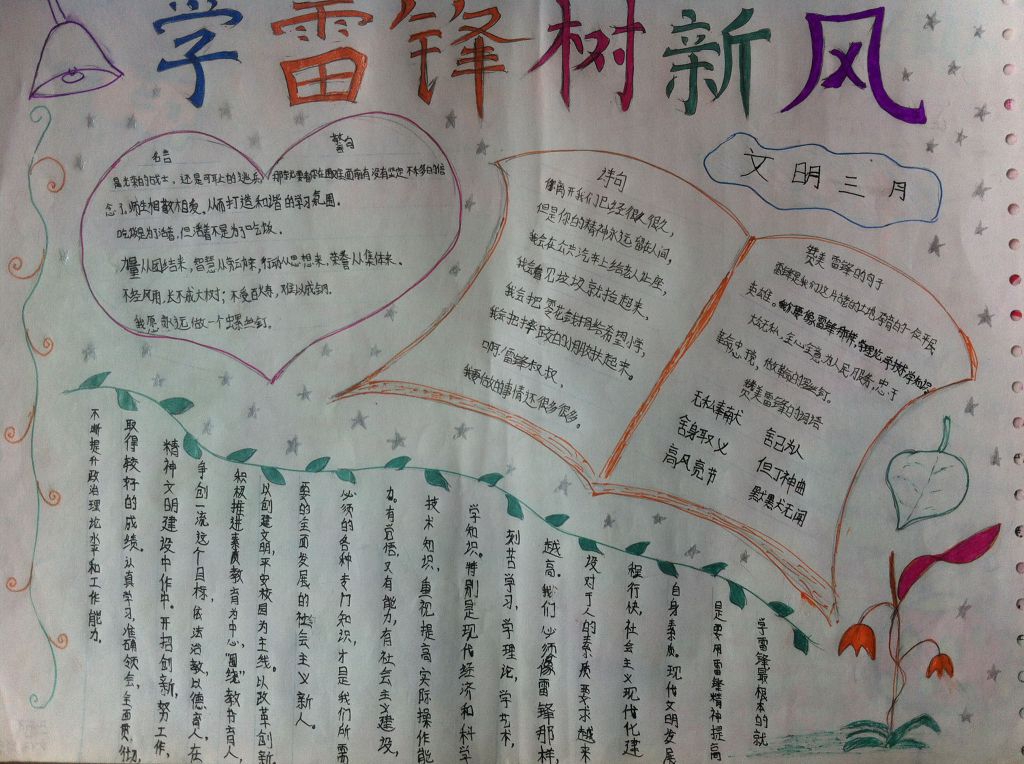 学雷锋树新风
文明三月
名言
警句
是光荣的战士，还是可耻的逃兵
念了，师生相敬相爱，从而打造和谐的学习氛围。
吃饭是为了活着，但活着不是为了吃饭。
力量从团结来，智慧从劳动来，行动从思想来，荣誉从集体来。
不经风雨，长不成大树；不受百炼，难以成钢。
我愿永远做一个螺丝钉。
诗句
你离开我们已经很久很久，
但是你的精神永远留在人间，
我会在公共汽车上给老人让座，
我会看见垃圾就捡起来，
我会把零花钱捐给希望小学，
我会把摔跤的小朋友扶起来。
啊！雷锋叔叔，
我要做的事情还很多很多。
赞美雷锋的句子
雷锋是我们这片热的土地孕育的一位平民
英雄。
大公无私，全心全意为人民服务，忠于
革命忠于党，做革命的螺丝钉。
赞美雷锋的词语
无私奉献 舍己为人
舍身取义
高风亮节 默默无闻
学雷锋最根本的就
是要用雷锋精神提高
自身素质。现代文明发展
程行快，社会主义现代化建
设对于人的素质要求越来
越高。我们必须像雷锋那样，
刻苦学习，学理论，学技术，
学知识。特别是现代经济和科学
技术知识，重视提高实际操作能
力。有觉悟，又有能力，有社会主义建设，
必须的各种专门知识，才是我们所需
要的全面发展的社会主义新人。
以创建文明，平安校园为主线。以改革创新
积极推进素质教育为中心，围绕教书育人，
争创一流这个目标，依法治教，以德育人，在
精神文明建设中作中。开招创新，努力工作，
取得较好的成绩。认真学习，准确领会，全面贯彻，
不断提升政治理论水平和工作能力。